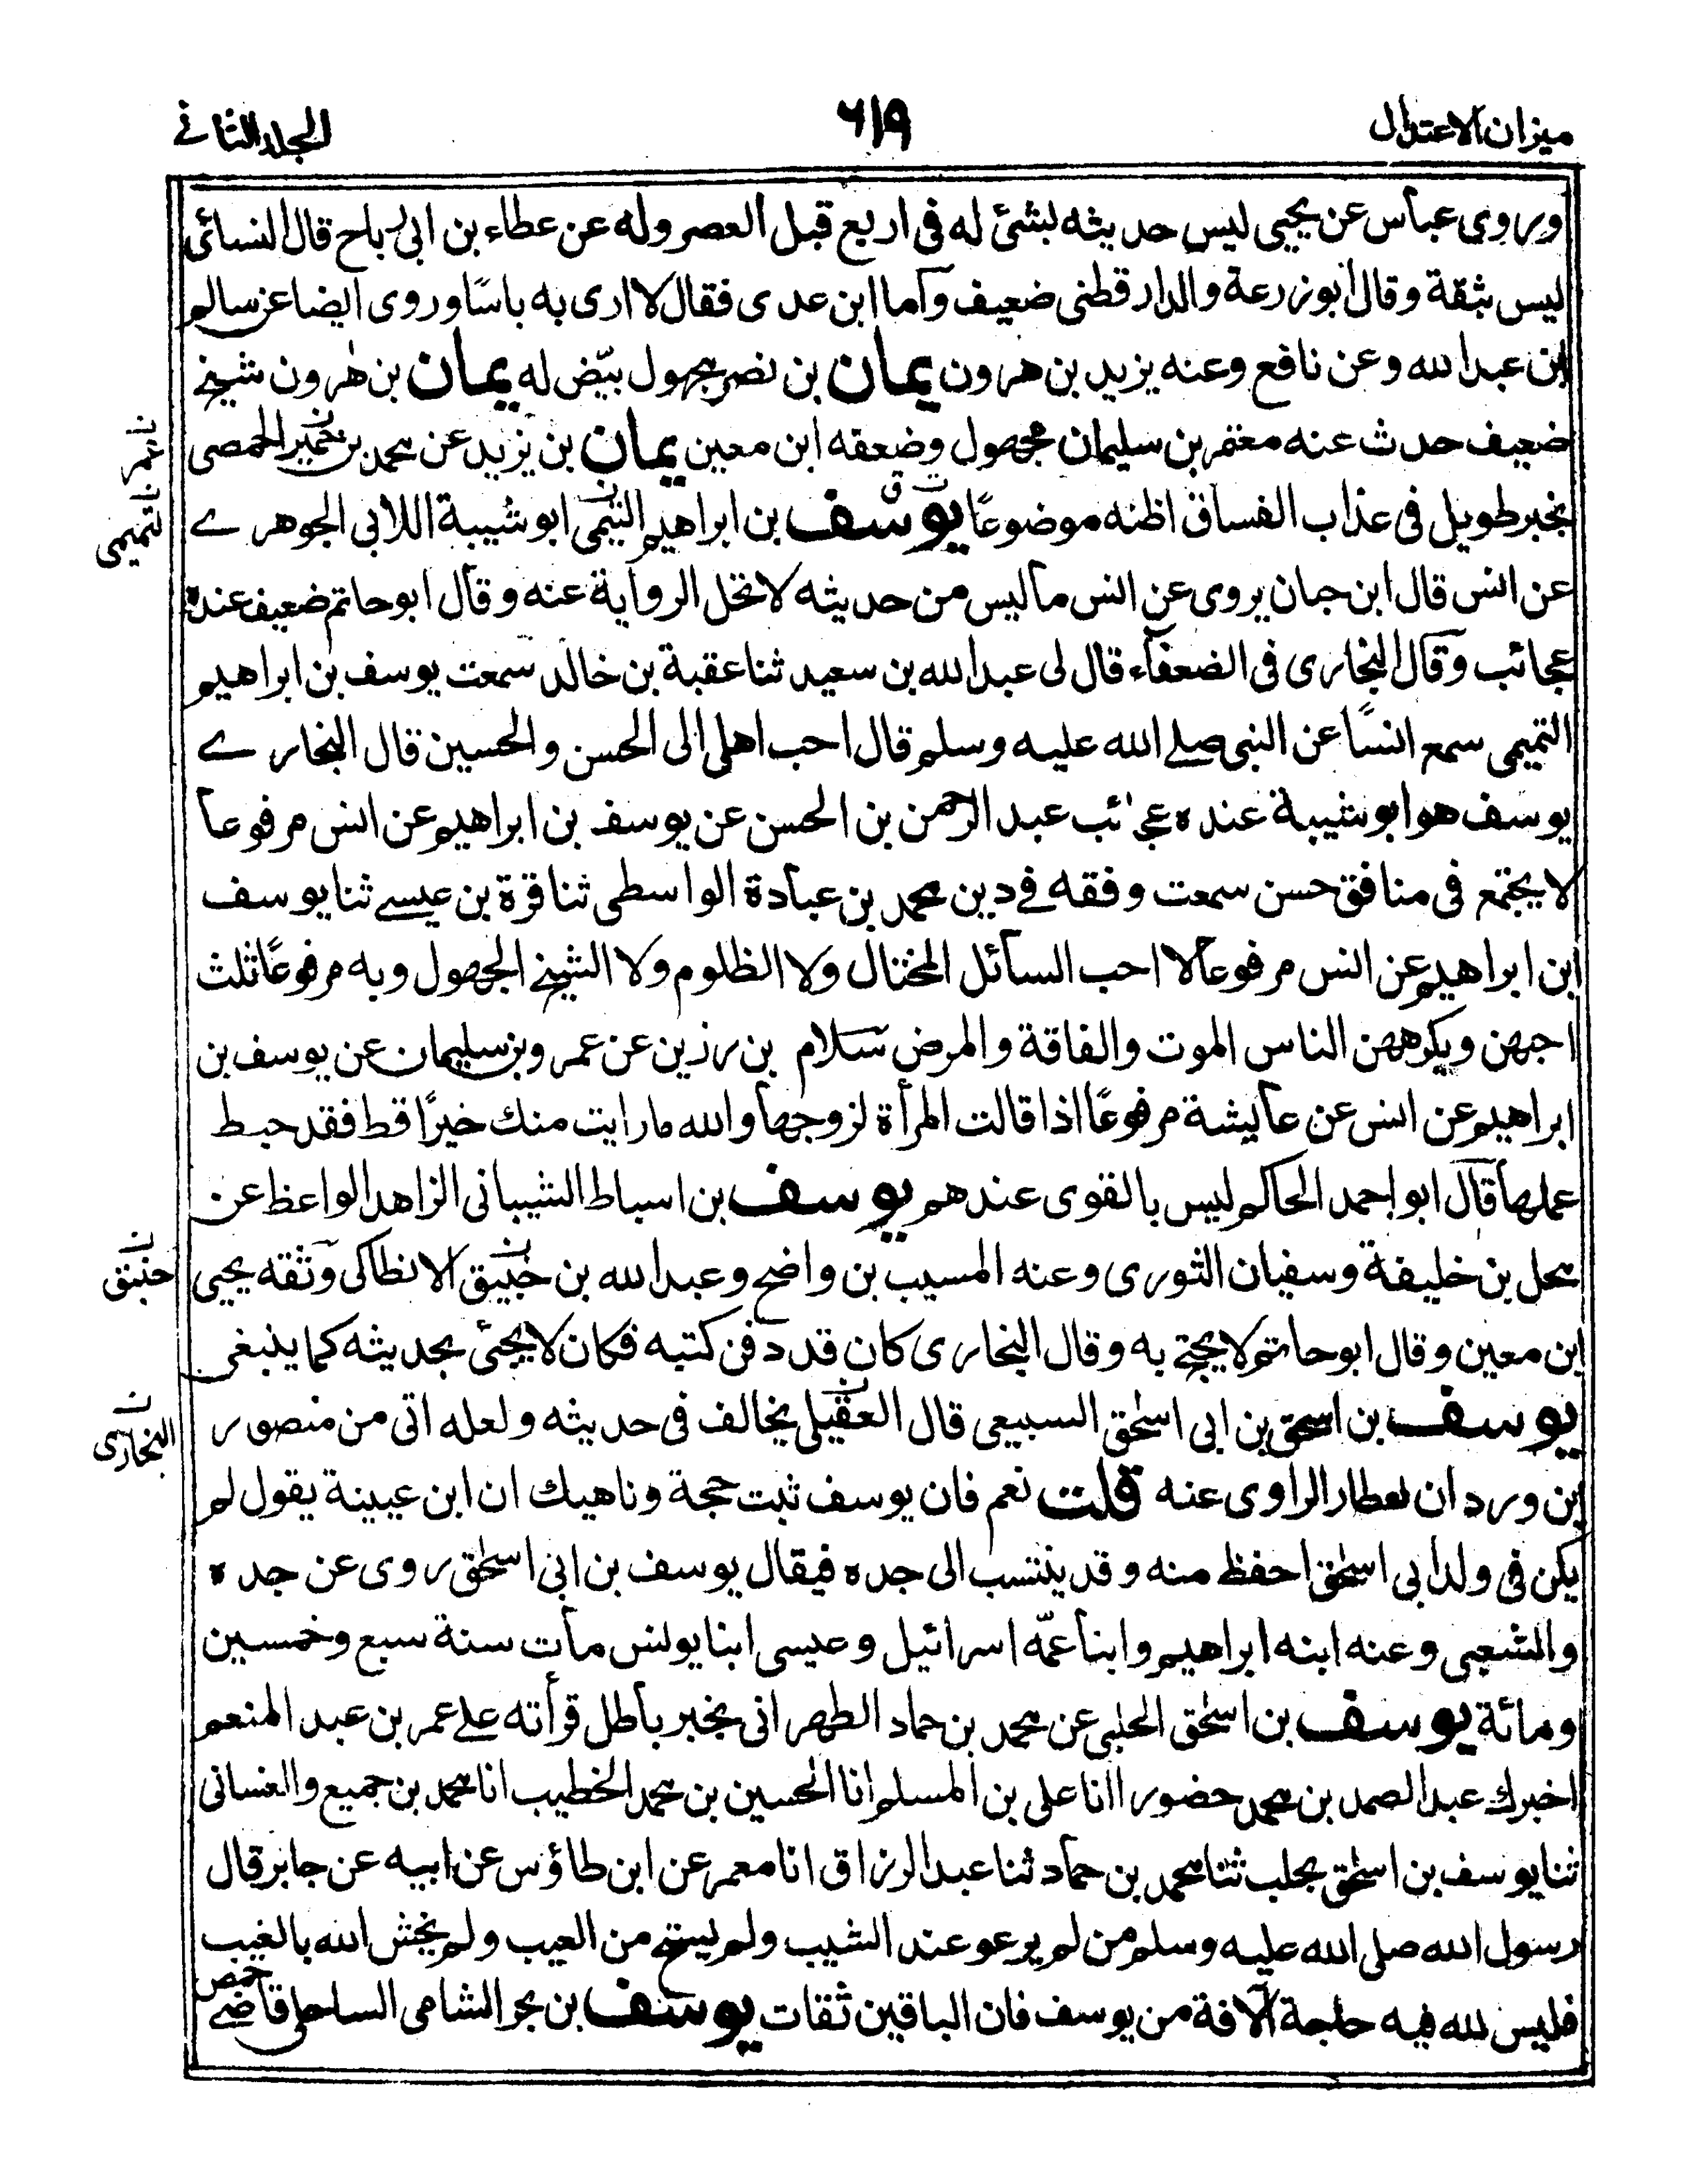 ميزان الاعتدال
٦١٩
المجلد الثاني
وروى عباس عن يحيى ليس حديثه بشئ له فى اربع قبل العصر وله عن عطاء بن ابى رباح قال النسائى
ليس بثقة وقال ابو زرعة والدار قطنى ضعيف واما ابن عدى فقال لا ارى به باسًا وروى ايضا عن سالم
ابن عبد الله وعن نافع وعنه يزيد بن هرون يمان بن نصر مجهول بيّض له يمان بن هٰرون شيخ
ضعيف حدث عنه معتمر بن سليمان مجهول وضعفه ابن معين يمان بن يزيد عن محمد بن خمير الحمصى
بخبر طويل فى عذاب الفساق اظنه موضوعًا يوسف بن ابراهيم التيمى ابو شيبة اللابى الجوهرے
عن انس قال ابن حبان يروى عن انس ما ليس من حديثه لا تحل الرواية عنه وقال ابو حاتم ضعيف عنده
عجائب وقال البخارى فى الضعفاء قال لى عبد الله بن سعيد ثنا عقبة بن خالد سمعت يوسف بن ابراهيم
التميمى سمع انسًا عن النبى صلے الله عليه وسلم قال احب اهلى الى الحسن والحسين قال البخارے
يوسف هو ابو شيبة عنده عجائب عبد الرحمن بن الحسن عن يوسف بن ابراهيم عن انس مرفوعا
لا يجتمع فى منافق حسن سمعت وفقه فے دين محمد بن عبادة الواسطى ثنا قرة بن عيسے ثنا يوسف
ابن ابراهيم عن انس مرفوعا لا احب السائل المختال ولا الظلوم ولا الشيخ الجهول وبه مرفوعًا ثلث
احبهن ويكرههن الناس الموت والفاقة والمرض سلام بن رزين عن عمر وبن سليمان عن يوسف بن
ابراهيم عن انس عن عايشة مرفوعًا اذا قالت المرأة لزوجها والله ما رايت منك خيرًا قط فقد حبط
عملها قال ابو احمد الحاكم ليس بالقوى عندهم يوسف بن اسباط الشيبانى الزاهد الواعظ عن
محل بن خليفة وسفيان الثورى وعنه المسيب بن واضح وعبد الله بن خبيق الانطاكى وثقه يحيى
ابن معين وقال ابو حاتم لا يحتج به وقال البخارى كان قد دفن كتبه فكان لا يجئ بحديثه كما ينبغى
يوسف بن اسحق بن ابى اسحٰق السبيعى قال العقيلى يخالف فى حديثه ولعله اتى من منصور
بن وردان لعطار الراوى عنه قلت نعم فان يوسف ثبت حجة وناهيك ان ابن عيينة يقول لم
يكن فى ولد ابى اسحٰق احفظ منه وقد ينتسب الى جده فيقال يوسف بن ابى اسحٰق روى عن جده
والشعبى وعنه ابنه ابراهيم وابنا عمّه اسرائيل وعيسى ابنا يونس مات سنة سبع وخمسين
ومائة يوسف بن اسحٰق الحلبى عن محمد بن حماد الطهرانى بخبر باطل قرأته علے عمر بن عبد المنعم
اخبرك عبد الصمد بن محمد حضورا انا على بن المسلم انا الحسين بن محمد الخطيب انا محمد بن جميع والغسانى
ثنا يوسف بن اسحٰق بحلب ثنا محمد بن حماد ثنا عبد الرزاق انا معمر عن ابن طاؤس عن ابيه عن جابر قال
رسول الله صلى الله عليه وسلم من لم يرعو عند الشيب ولم يستح من العيب ولم يخش الله بالغيب
فليس لله فيه حاجة الآفة من يوسف فان الباقين ثقات يوسف بن بحر الشامى الساحلى قاضے حمص
التميمى
خبيق
البخارى